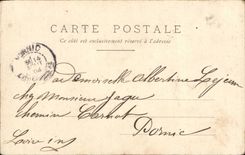 CARTE POSTALE
Ce côté est exclusivement réservé à l'adresse
Mademoiselle Albertine Lejeune
chez Monsieur Jagu
chemin Carnot
Pornic
Loire Inf